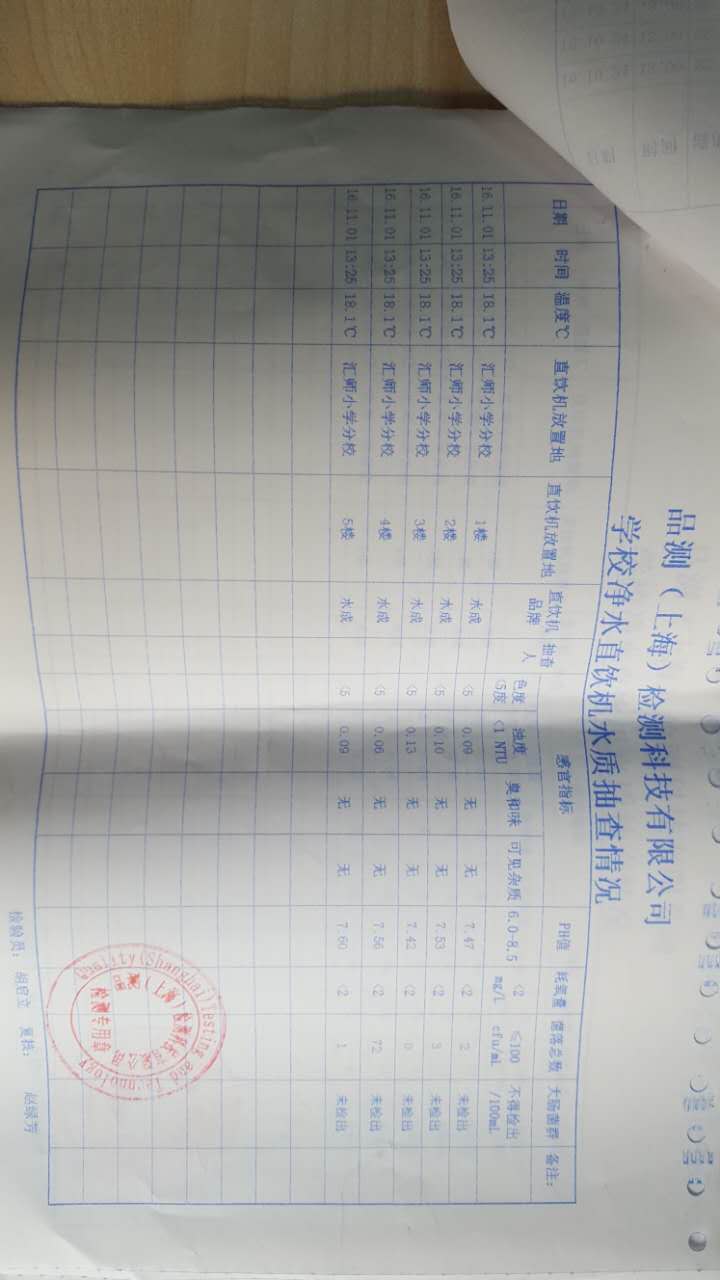 品测（上海）检测科技有限公司
学校净水直饮机水质抽查情况
日期 时间 温度℃ 直饮机放置地 直饮机放置地 直饮机品牌 抽查人 感官指标 PH值 耗氧量 菌落总数 大肠菌群 备注:
色度 浊度 臭和味 可见杂质 6.0-8.5 <2 ≤100 不得检出
<5度 <1 NTU mg/L cfu/mL /100mL
16.11.01 13:25 18.1℃ 汇师小学分校 1楼 水成 <5 0.09 无 无 7.47 <2 2 未检出
16.11.01 13:25 18.1℃ 汇师小学分校 2楼 水成 <5 0.10 无 无 7.53 <2 3 未检出
16.11.01 13:25 18.1℃ 汇师小学分校 3楼 水成 <5 0.13 无 无 7.42 <2 0 未检出
16.11.01 13:25 18.1℃ 汇师小学分校 4楼 水成 <5 0.06 无 无 7.56 <2 72 未检出
16.11.01 13:25 18.1℃ 汇师小学分校 5楼 水成 <5 0.09 无 无 7.60 <2 1 未检出
Quality(Shanghai)Testing and Technology
品测（上海）检测科技有限公司
检测专用章
检验员: 胡启立 复核: 赵绿芳